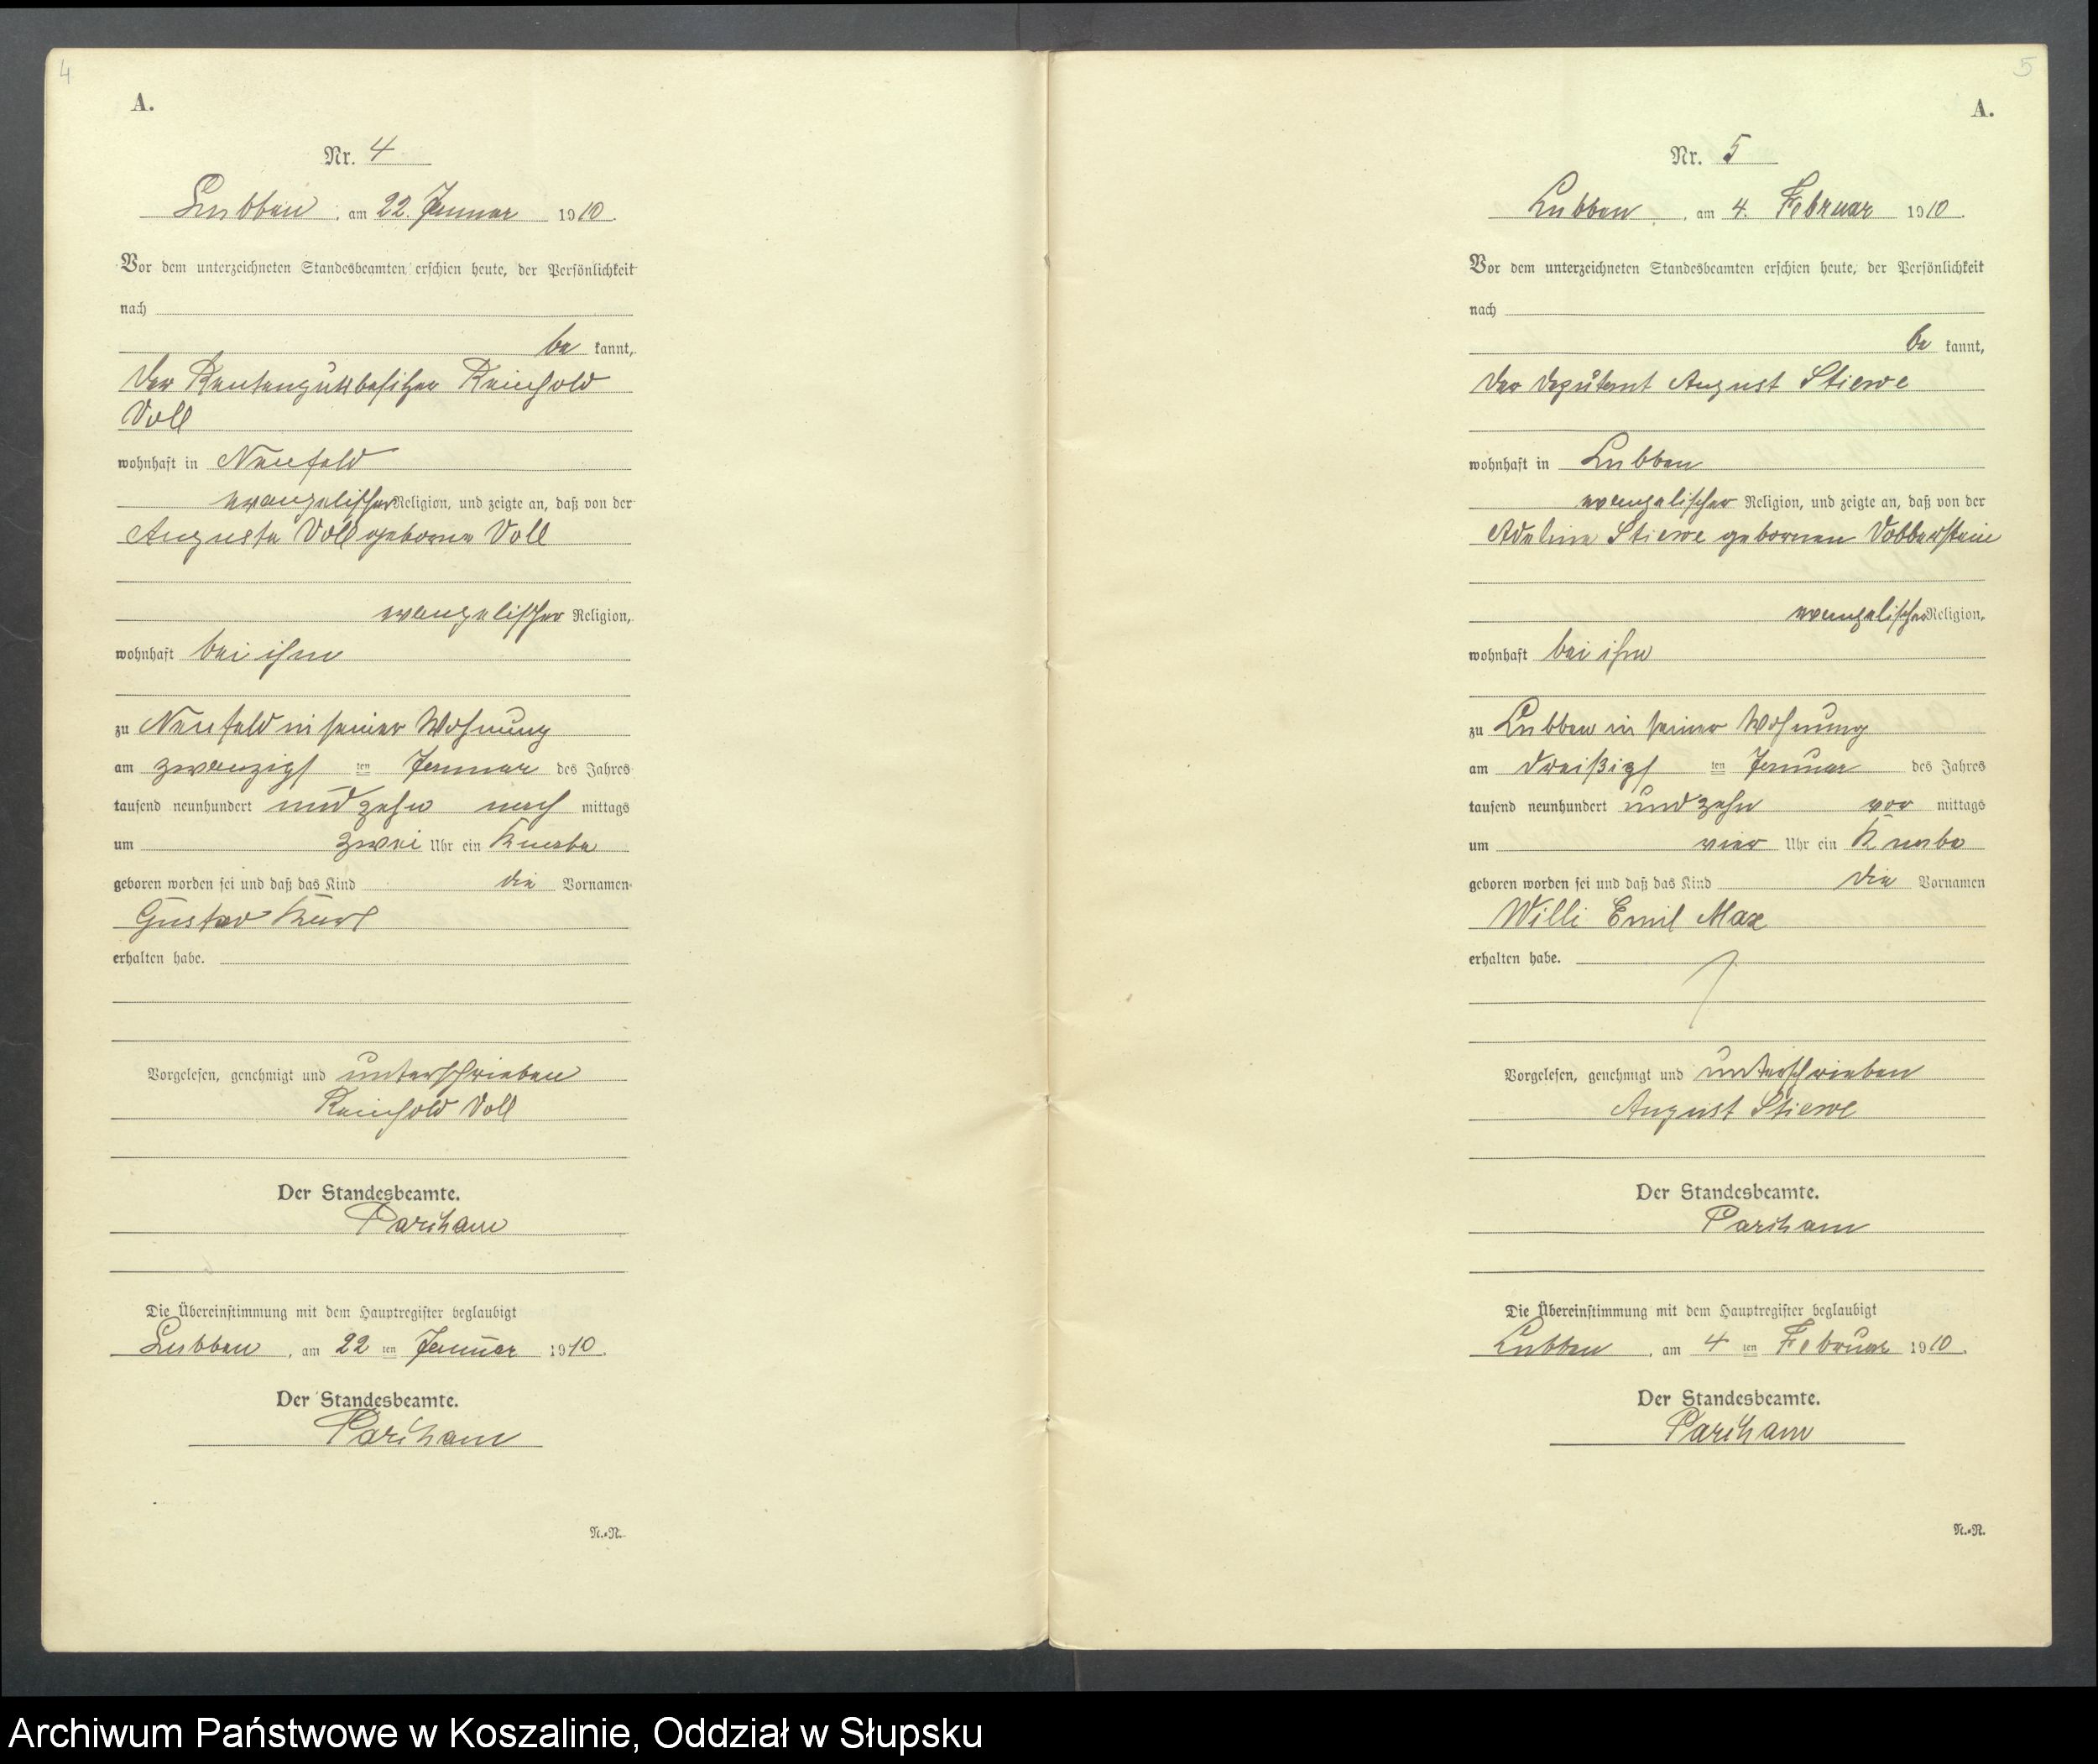 4
A.
Nr. 4
Lubben, am 22. Januar 1910.
Vor dem unterzeichneten Standesbeamten erschien heute, der Persönlichkeit
nach
be kannt,
der Rentengutsbesitzer Reinhold
Voll
wohnhaft in Neufeld
evangelischer Religion, und zeigte an, daß von der
Auguste Voll geborne Voll
evangelischer Religion,
wohnhaft bei ihm
zu Neufeld in seiner Wohnung
am zwanzigs ten Januar des Jahres
tausend neunhundert und zehn nach mittags
um zwei Uhr ein Knabe
geboren worden sei und daß das Kind die Vornamen
Gustav Karl
erhalten habe.
Vorgelesen, genehmigt und unterschrieben
Reinhold Voll
Der Standesbeamte.
Die Übereinstimmung mit dem Hauptregister beglaubigt
Lubben, am 22 ten Januar 1910.
Der Standesbeamte.
N.=N.
5
A.
Nr. 5
Lubben, am 4. Februar 1910.
Vor dem unterzeichneten Standesbeamten erschien heute, der Persönlichkeit
nach
be kannt,
der Deputant August Stiewe
wohnhaft in Lubben
evangelischer Religion, und zeigte an, daß von der
Adeline Stiewe gebornen Dobberstein
evangelischer Religion,
wohnhaft bei ihm
zu Lubben in seiner Wohnung
am dreißigs ten Januar des Jahres
tausend neunhundert und zehn vor mittags
um vier Uhr ein Knabe
geboren worden sei und daß das Kind die Vornamen
Willi Emil Max
erhalten habe.
Vorgelesen, genehmigt und unterschrieben
August Stiewe
Der Standesbeamte.
Die Übereinstimmung mit dem Hauptregister beglaubigt
Lubben, am 4 ten Februar 1910.
Der Standesbeamte.
N.=N.
Archiwum Państwowe w Koszalinie, Oddział w Słupsku